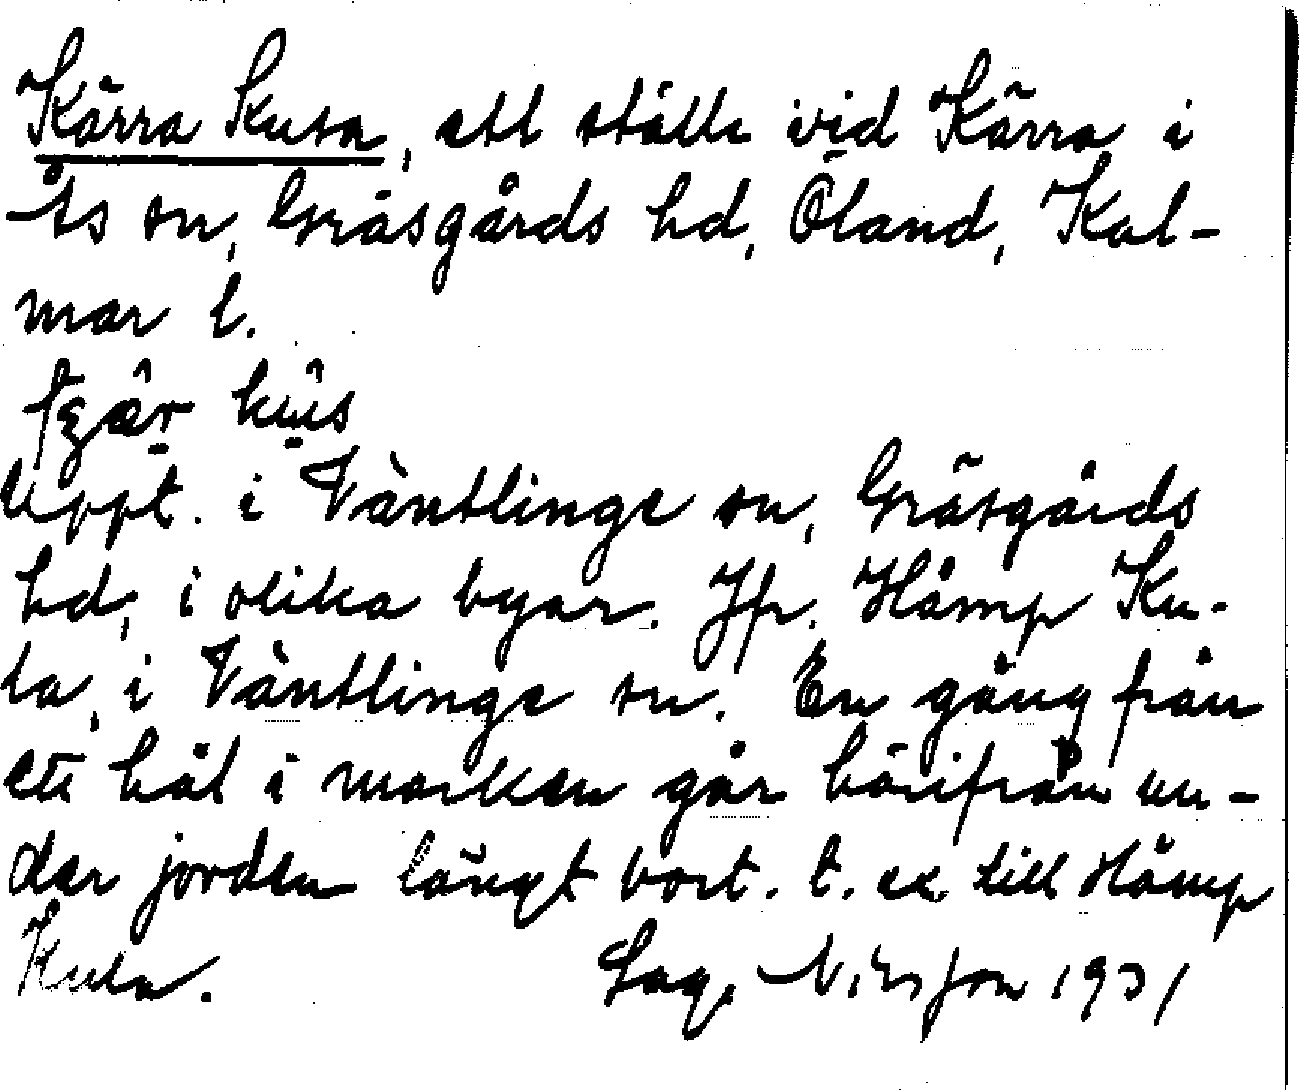 Kärra Kuta, ett ställe vid Kärra i
Ås sn, Gräsgårds hd, Öland, Kal-
mar l.
Uppt. i Väntlinge sn, Gräsgårds
hd, i olika byar. Jfr. Håmp Ku-
ta, i Väntlinge sn. En gång från
ett hål i marken går härifrån un-
der jorden långt bort. t. ex till Håmp
Kuta. Sag. Nilsson 1931